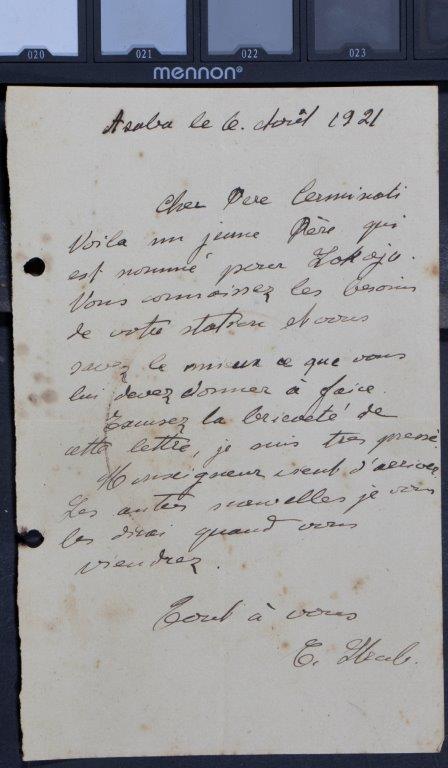 020 021 022 023
mennon®
Asaba le 6. Août 1921
Cher Père Cerminati
Voila un jeune Père qui
est nommé pour Lokoja.
Vous connaissez les besoins
de votre station et vous
savez le mieux ce que vous
lui devez donner à faire.
Excusez la brieveté de
cette lettre, je suis tres pressé
Monseigneur vient d'arriver.
Les autres nouvelles je vous
les dirai quand vous
viendrez.
Tout à vous